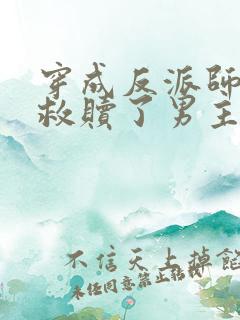 穿成反派師
救贖了男主
不信天上掉餡
未經同意禁止轉載